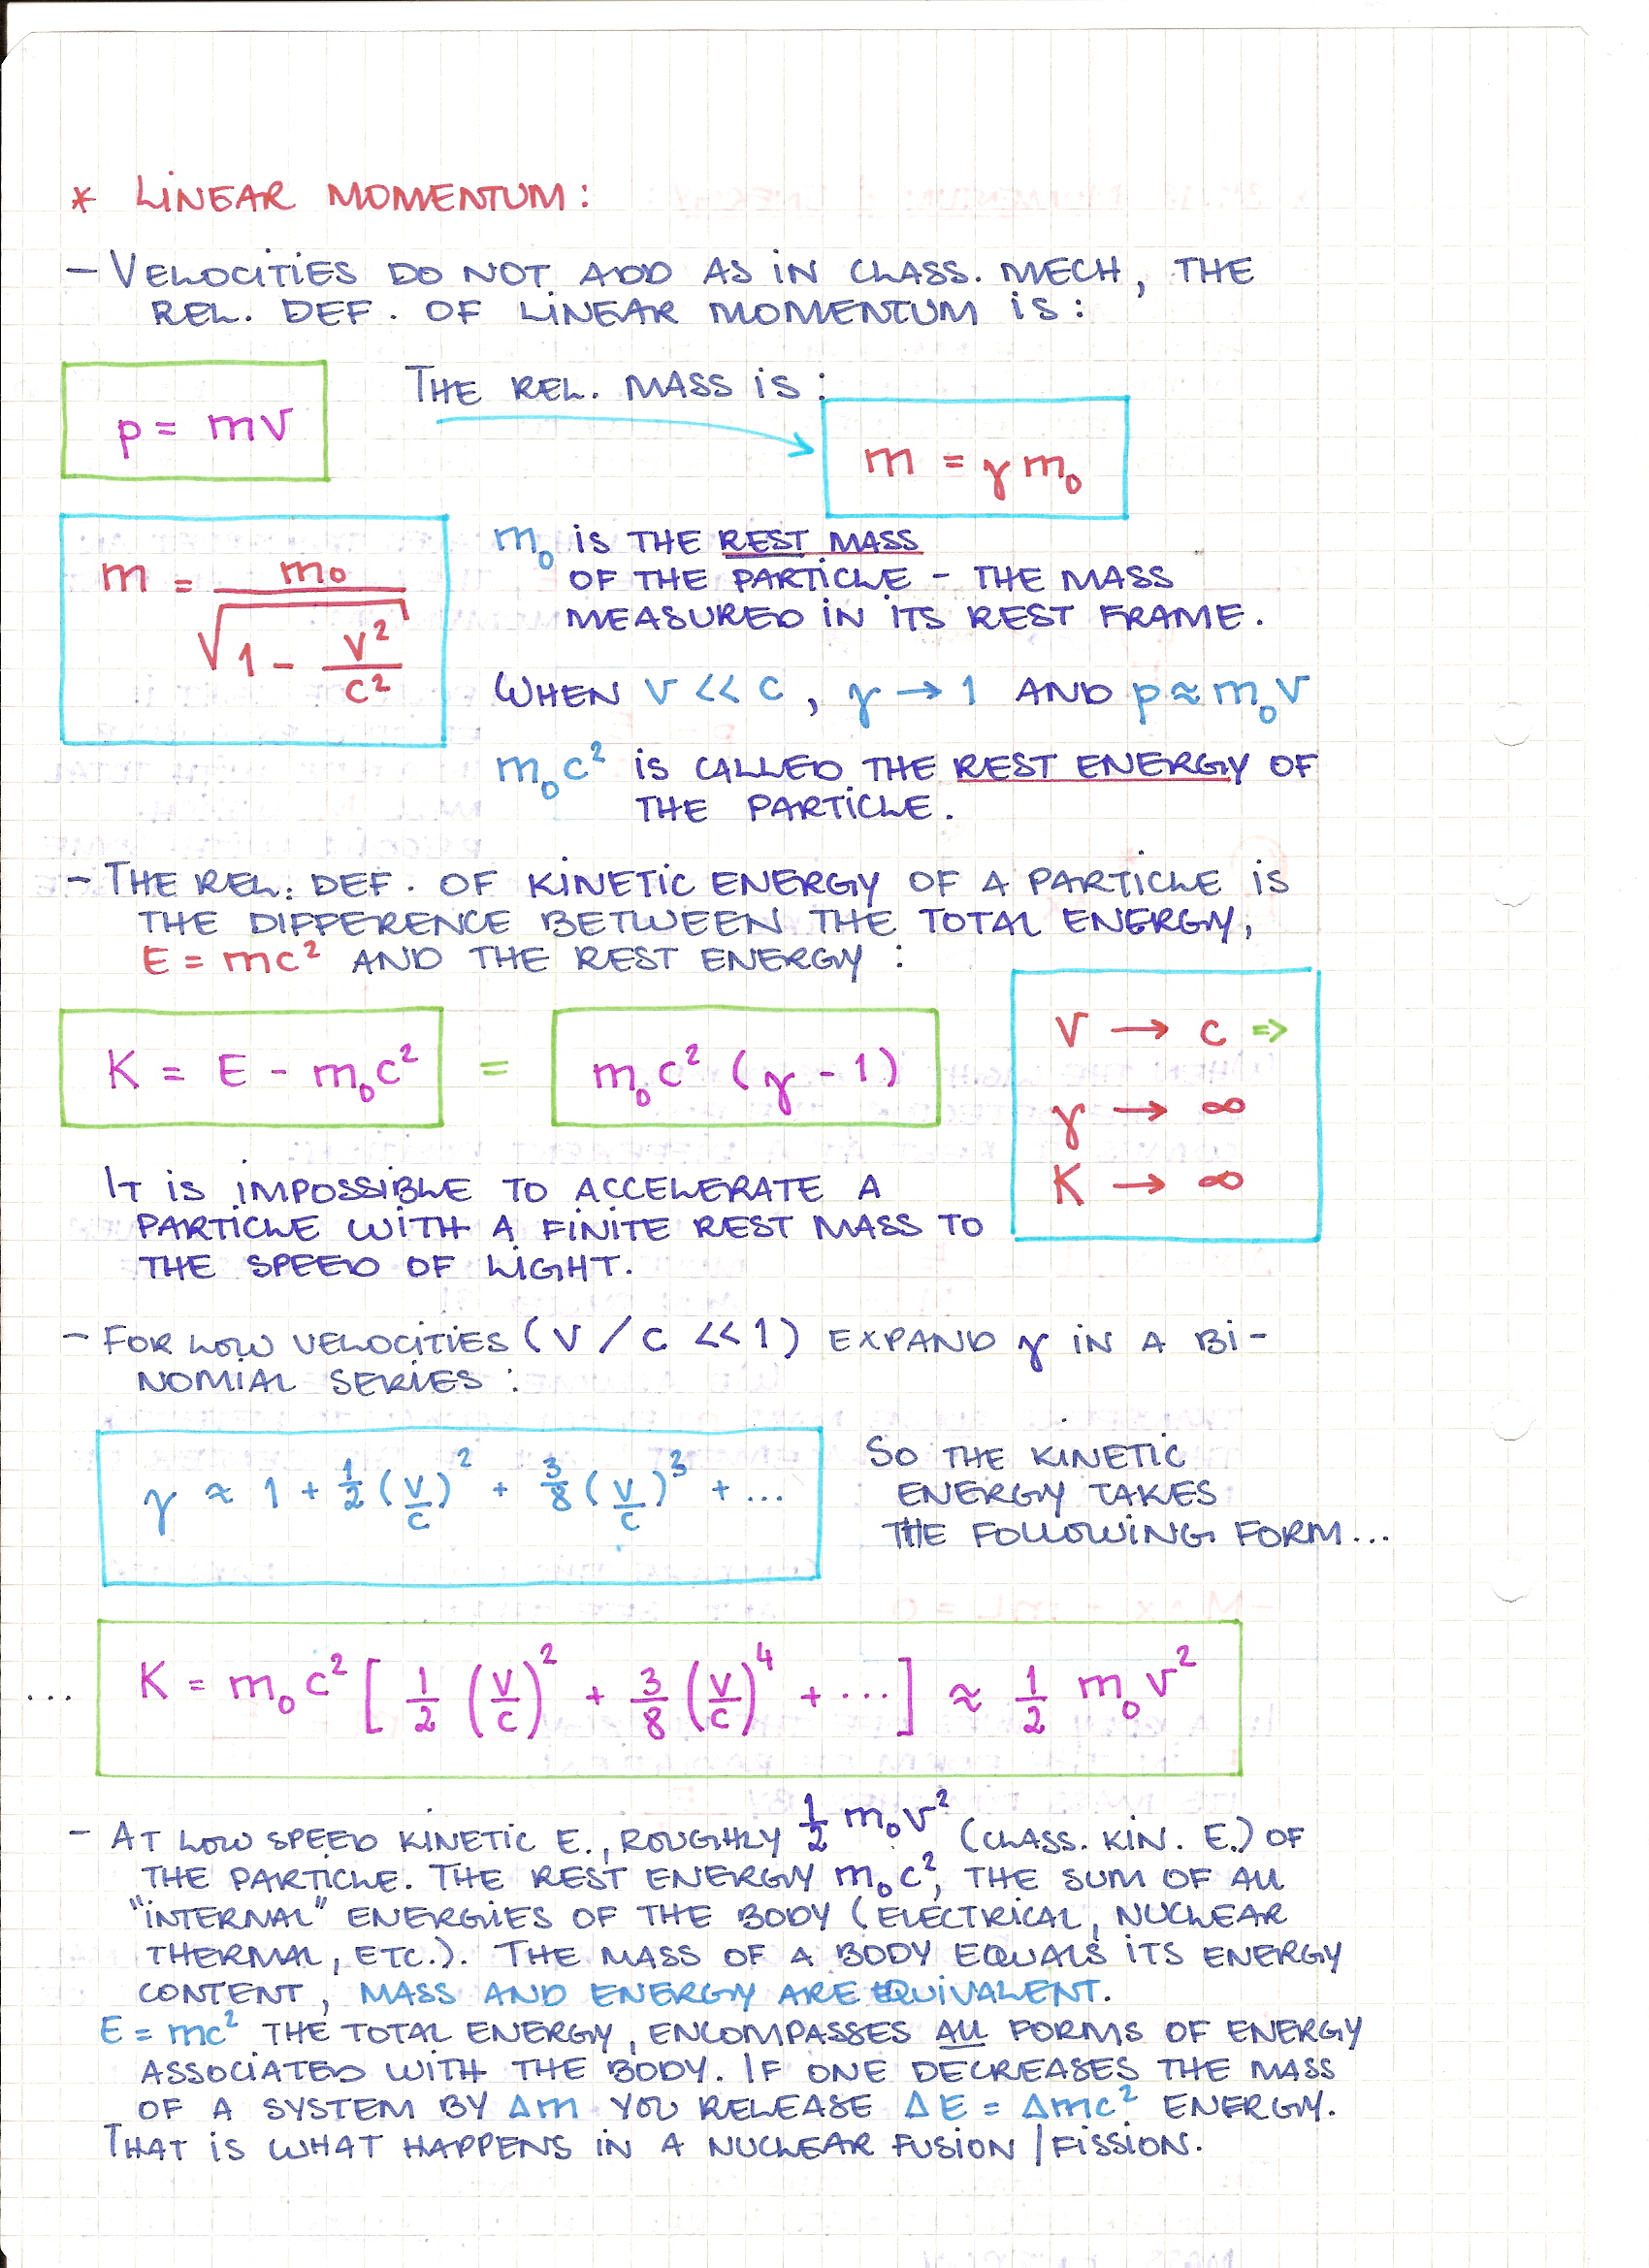 * LINEAR MOMENTUM:
- VELOCITIES DO NOT ADD AS IN CLASS. MECH, THE
REL. DEF. OF LINEAR MOMENTUM IS:
p = mv
THE REL. MASS IS:
m = γm₀
m = m₀ / √(1 - v²/c²)
m₀ IS THE REST MASS
OF THE PARTICLE - THE MASS
MEASURED IN ITS REST FRAME.
WHEN v << c, γ → 1 AND p ≈ m₀v
m₀c² IS CALLED THE REST ENERGY OF
THE PARTICLE.
- THE REL. DEF. OF KINETIC ENERGY OF A PARTICLE IS
THE DIFFERENCE BETWEEN THE TOTAL ENERGY,
E = mc² AND THE REST ENERGY:
K = E - m₀c² = m₀c² (γ - 1)
v → c ⇒
γ → ∞
K → ∞
IT IS IMPOSSIBLE TO ACCELERATE A
PARTICLE WITH A FINITE REST MASS TO
THE SPEED OF LIGHT.
- FOR LOW VELOCITIES (v / c << 1) EXPAND γ IN A BI-
NOMIAL SERIES:
γ ≈ 1 + ½ (v/c)² + ⅜ (v/c)³ + ...
SO THE KINETIC
ENERGY TAKES
THE FOLLOWING FORM...
... K = m₀c² [ ½ (v/c)² + ⅜ (v/c)⁴ + ... ] ≈ ½ m₀v²
- AT LOW SPEED KINETIC E., ROUGHLY ½ m₀v² (CLASS. KIN. E.) OF
THE PARTICLE. THE REST ENERGY m₀c², THE SUM OF ALL
"INTERNAL" ENERGIES OF THE BODY (ELECTRICAL, NUCLEAR
THERMAL, ETC.). THE MASS OF A BODY EQUALS ITS ENERGY
CONTENT, MASS AND ENERGY ARE EQUIVALENT.
E = mc² THE TOTAL ENERGY, ENCOMPASSES ALL FORMS OF ENERGY
ASSOCIATED WITH THE BODY. IF ONE DECREASES THE MASS
OF A SYSTEM BY Δm YOU RELEASE ΔE = Δmc² ENERGY.
THAT IS WHAT HAPPENS IN A NUCLEAR FUSION / FISSION.